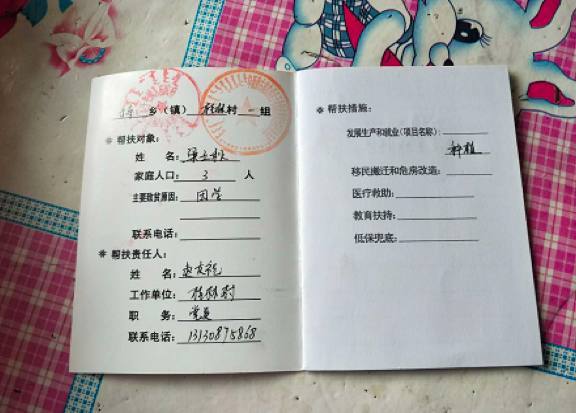 乡(镇) 桂林村 一 组
※ 帮扶对象:
姓 名:
家庭人口: 3 人
主要致贫原因: 因学
联系电话:
※ 帮扶责任人:
姓 名:
工作单位: 桂林村
职 务: 党员
联系电话: 13130875868
※ 帮扶措施:
发展生产和就业(项目名称):
种植
移民搬迁和危房改造:
医疗救助:
教育扶持:
低保兜底: